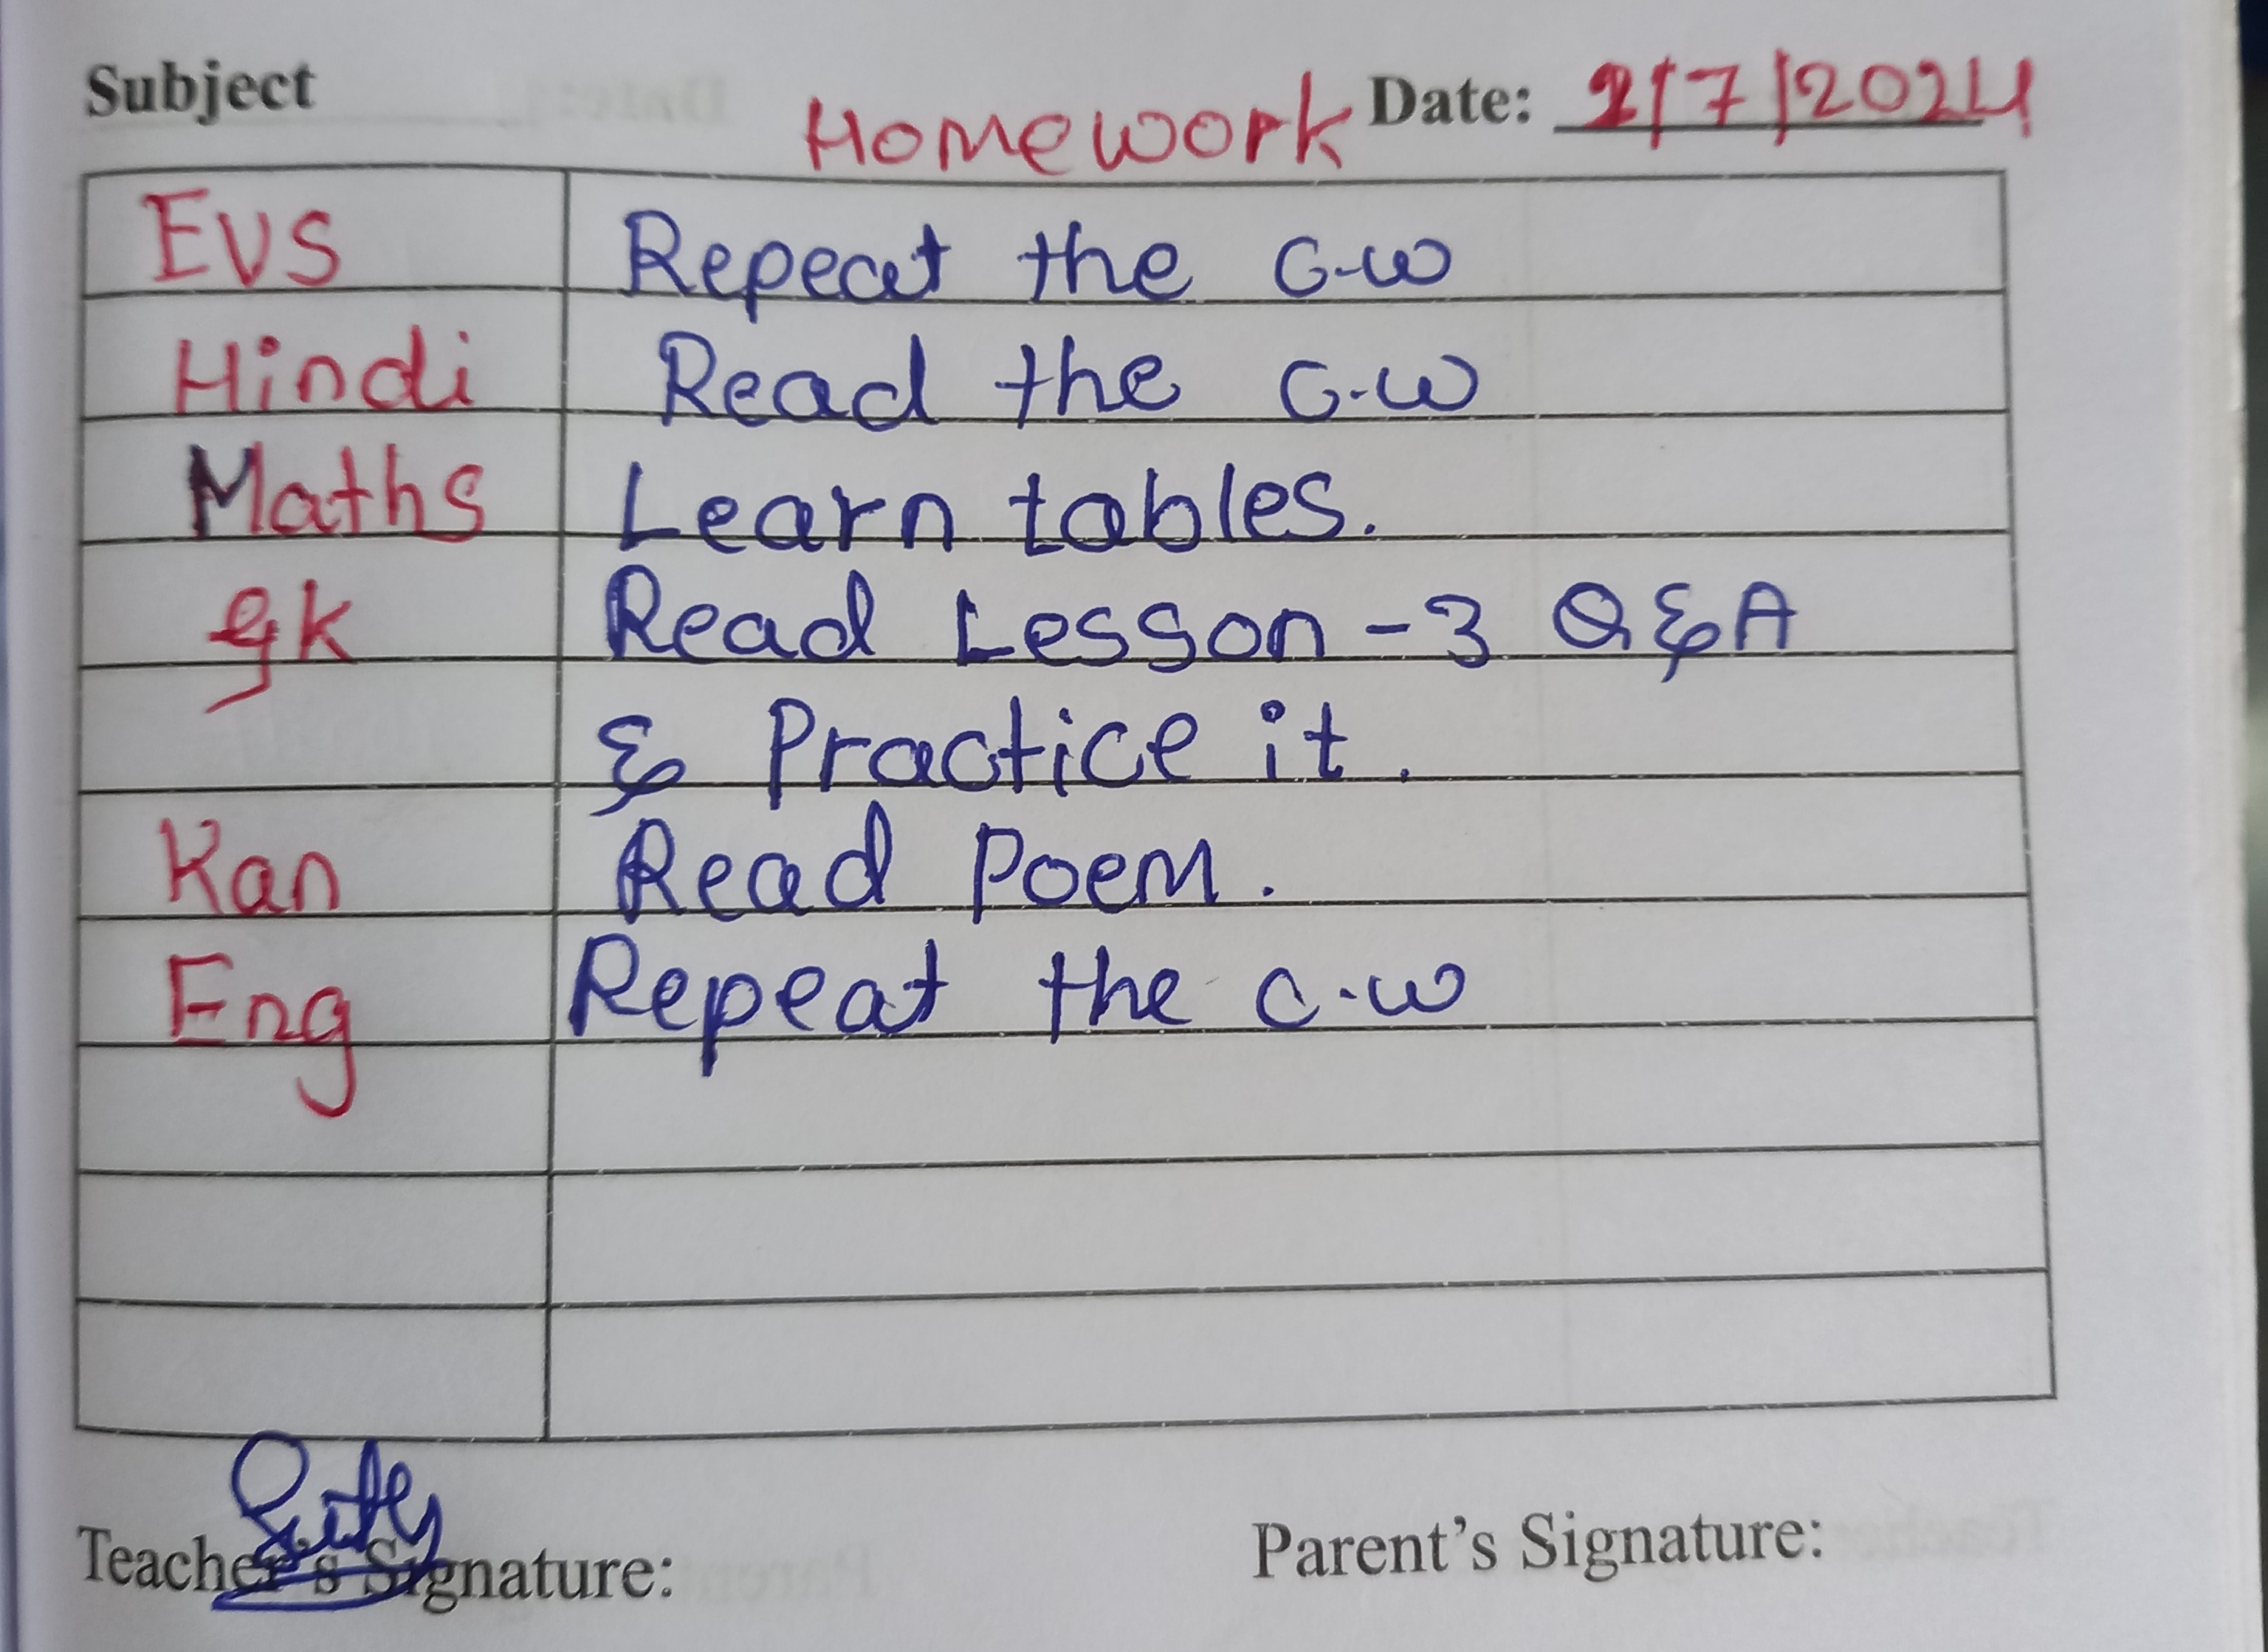 Subject Homework Date: 2/7/2024
EVS Repeat the C.W
Hindi Read the C.W
Maths Learn tables.
gk Read Lesson-3 Q&A
& Practice it.
Kan Read Poem.
Eng Repeat the C.W
Teacher's Signature: Parent's Signature: